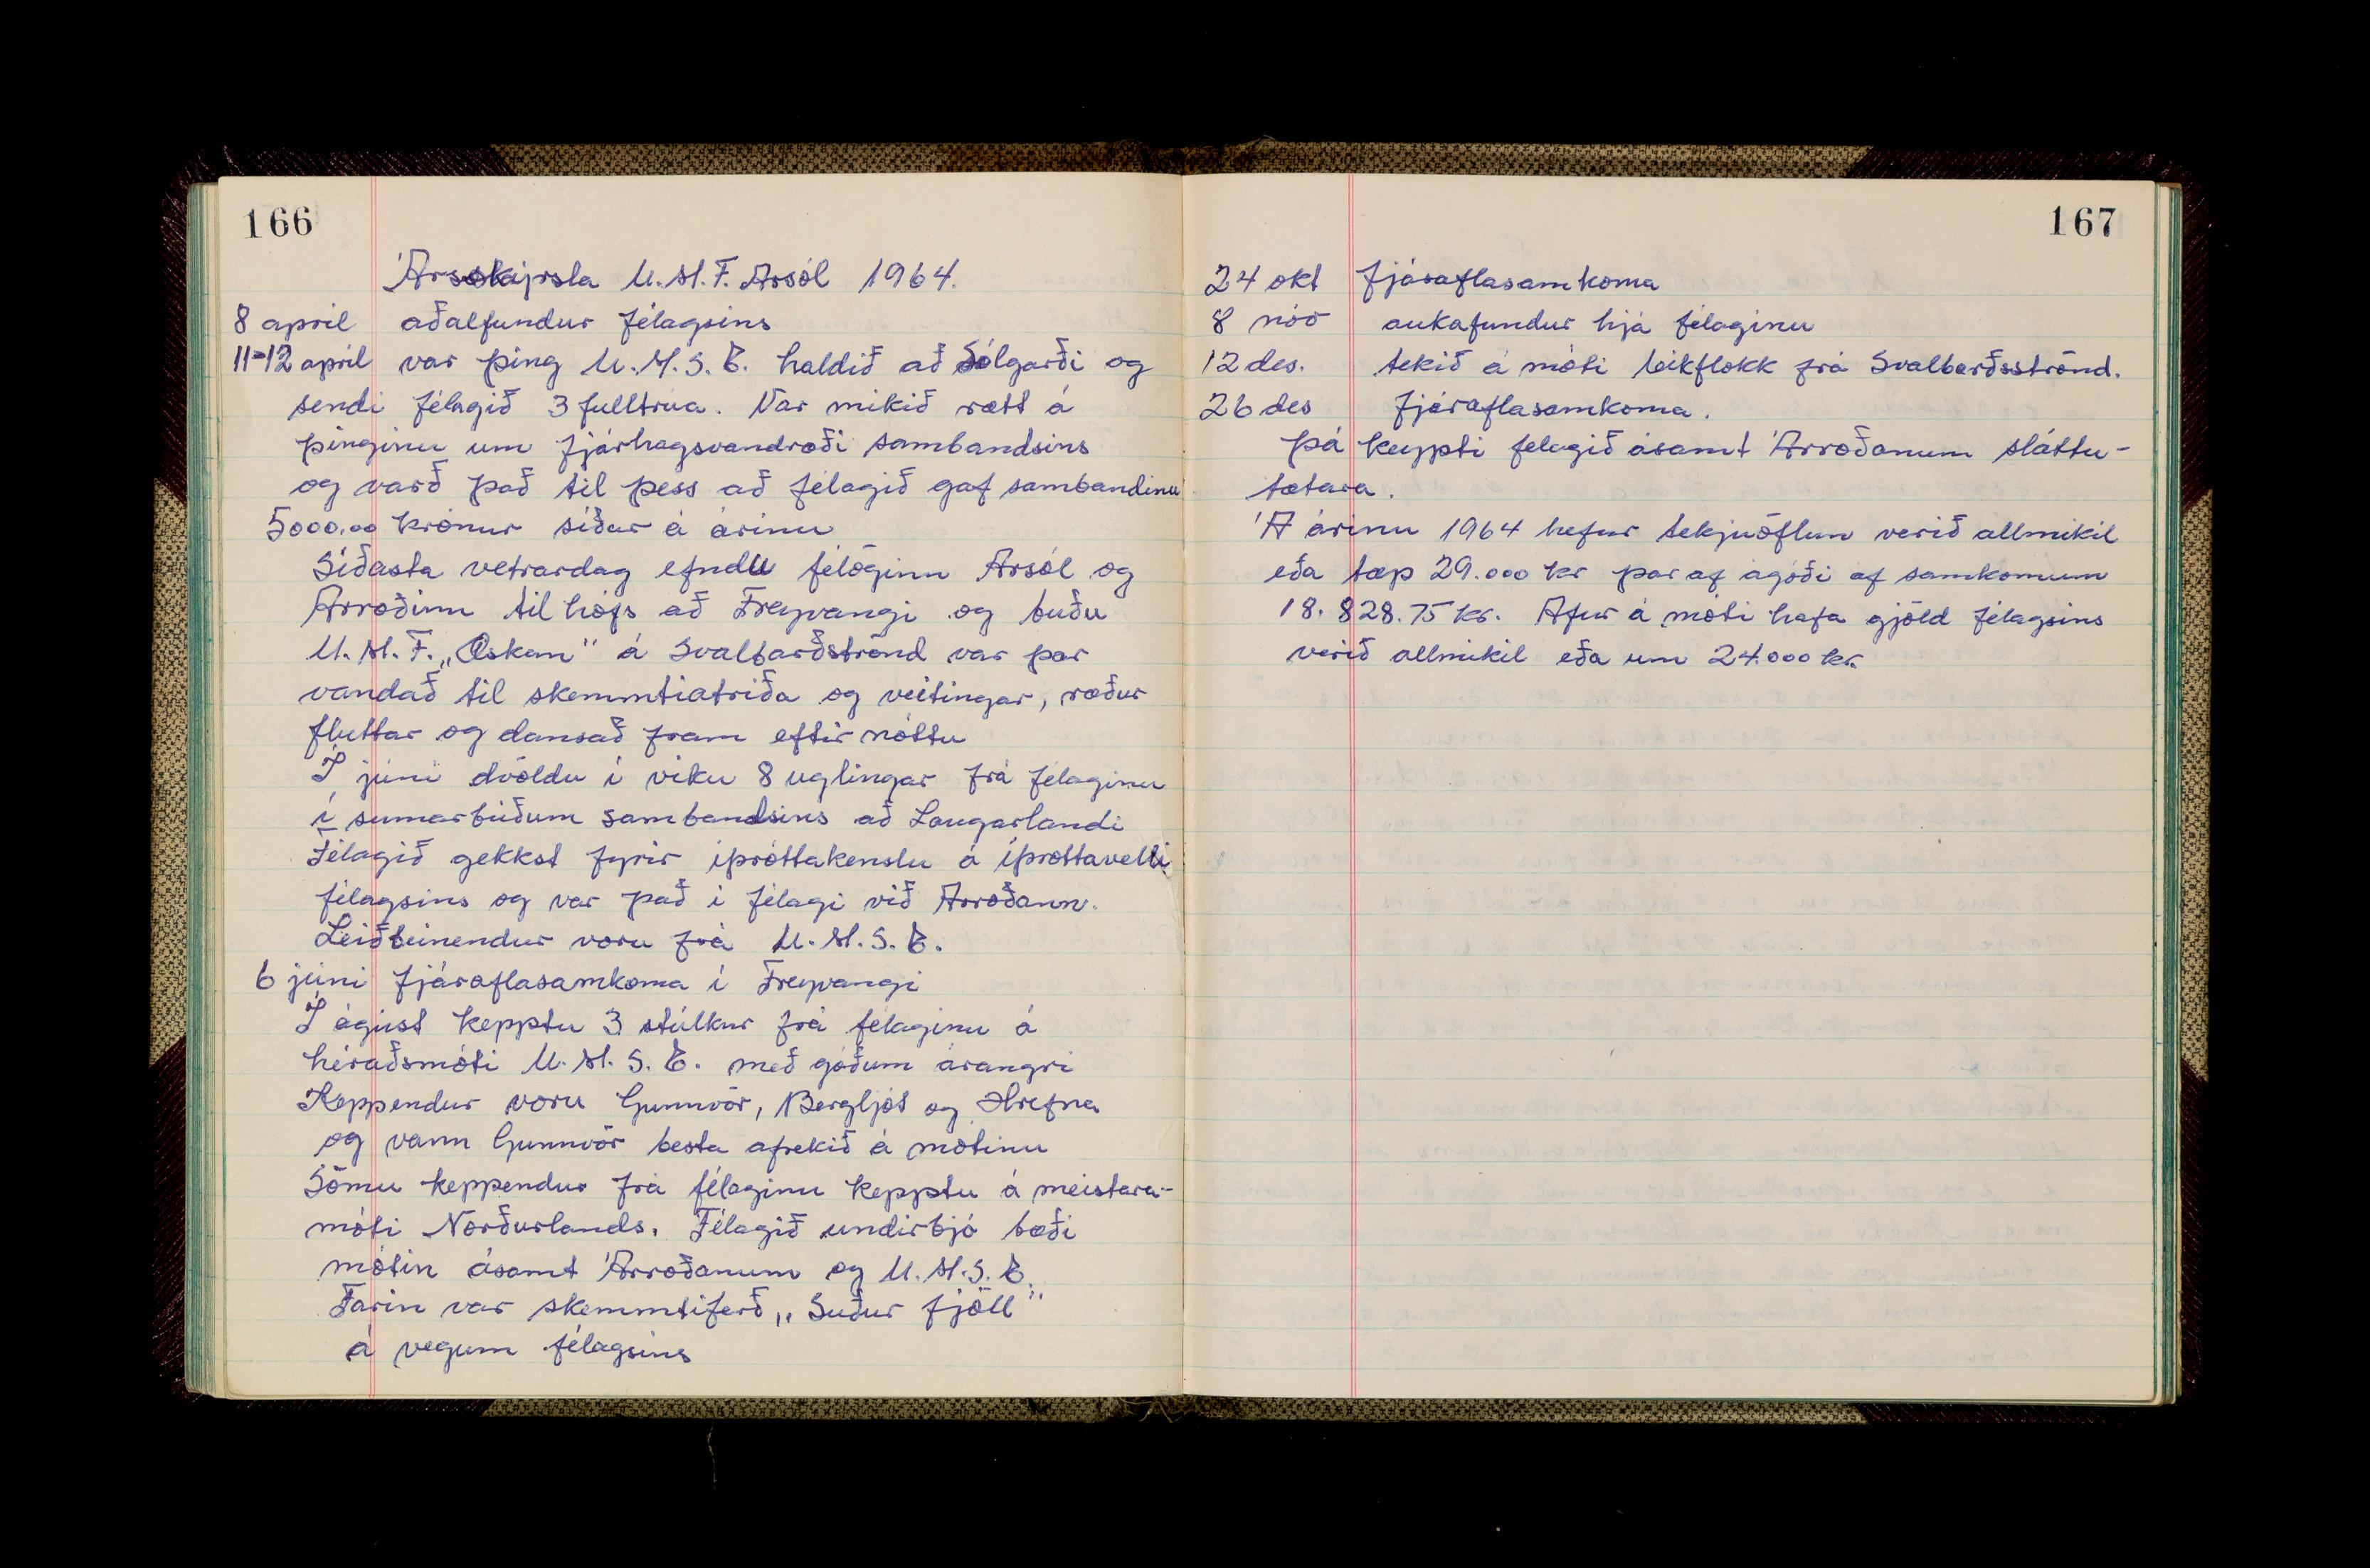 166
Ársskýrsla U.M.F. Ársól 1964.
8 apríl aðalfundur félagsins
11-12 apríl var þing U.M.S.E. haldið að Sólgarði og
sendi félagið 3 fulltrúa. Var mikið rætt á
þinginu um fjárhagsvandræði sambandsins
og varð það til þess að félagið gaf sambandinu
5000.00 krónur síðar á árinu
Síðasta vetrardag efndu félöginn Ársól og
Árroðinn til hófs að Freyvangi og buðu
U.M.F. „Æskan" á Svalbarðströnd var þar
vandað til skemmtiatriða og veitingar, ræður
fluttar og dansað fram eftir nóttu
Í júni dvöldu í viku 8 uglingar frá félaginu
í sumarbúðum sambandsins að Laugarlandi
Félagið gekkst fyrir íþróttakenslu á íþróttavelli
félagsins og var það í félagi við Árroðann.
Leiðbeinendur voru frá U.M.S.E.
6 júni fjáraflasamkoma í Freyvangi
Í ágúst kepptu 3 stúlkur frá félaginu á
héraðsmóti U.M.S.E. með góðum árangri
Keppendur voru Gunnvör, Bergljót og Hrefna
og vann Gunnvör besta afrekið á mótinu
Sömu keppendur frá félaginu kepptu á meistara-
móti Norðurlands. Félagið undirbjó bæði
mótin ásamt Árroðanum og U.M.S.E.
Farin var skemmtiferð „Suður fjöll"
á vegum félagsins
167
24 okt fjáraflasamkoma
8 nóv aukafundur hjá félaginu
12 des. tekið á móti leikflokk frá Svalbarðsströnd.
26 des fjáraflasamkoma.
þá keypti felagið ásamt Árroðanum sláttu-
tætara.
Á árinu 1964 hefur tekjuöflun verið allmikil
eða tæp 29.000 kr þar af ágóði af samkomum
18.828.75 kr. Afur á móti hafa gjöld félagsins
verið allmikil eða um 24.000 kr.